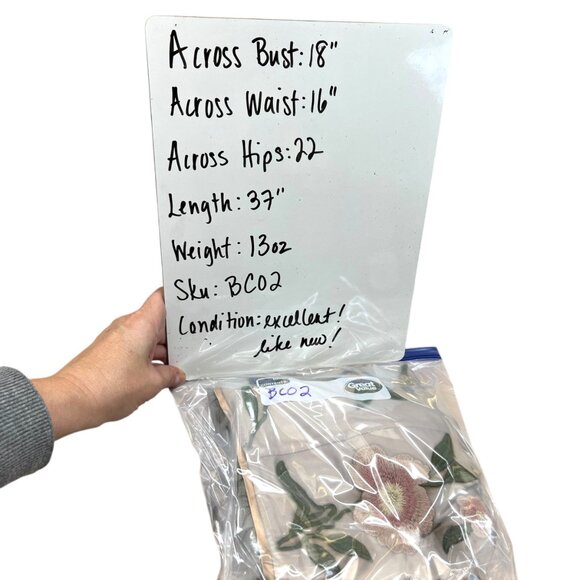 Across Bust: 18"
Across Waist: 16"
Across Hips: 22
Length: 37"
Weight: 13oz
Sku: BC02
Condition: excellent!
like new!
BC02
Great
Value